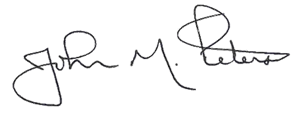 John M. Peters